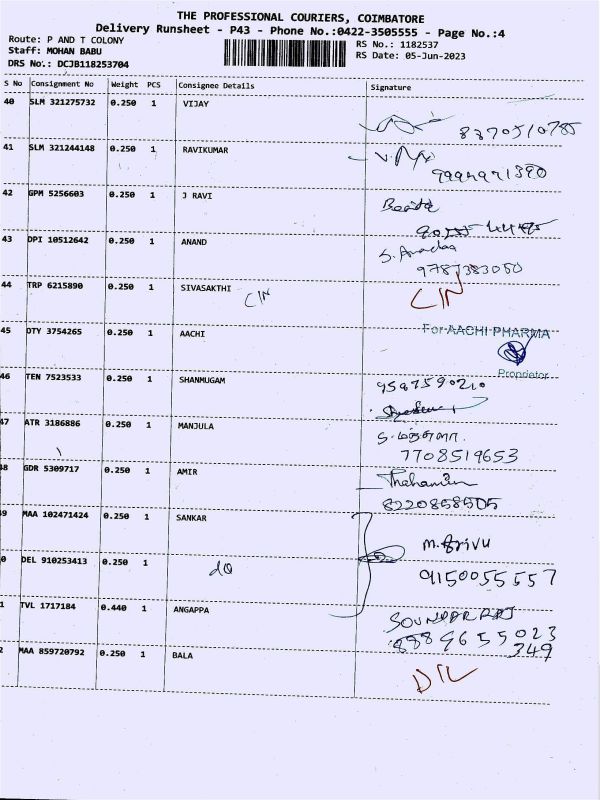 THE PROFESSIONAL COURIERS, COIMBATORE
Delivery Runsheet - P43 - Phone No.:0422-3505555 - Page No.:4
Route: P AND T COLONY
Staff: MOHAN BABU
DRS No.: DCJB118253704
RS No.: 1182537
RS Date: 05-Jun-2023
S No Consignment No Weight PCS Consignee Details Signature
40 SLM 321275732 0.250 1 VIJAY
8370510785
41 SLM 321244148 0.250 1 RAVIKUMAR
42 GPM 5256603 0.250 1 J RAVI
43 DPI 10512642 0.250 1 ANAND
9787383050
44 TRP 6215890 0.250 1 SIVASAKTHI C/N C/N
45 DTY 3754265 0.250 1 AACHI For AACHI PHARMA
Proprietor
46 TEN 7523533 0.250 1 SHANMUGAM 9587590210
47 ATR 3186886 0.250 1 MANJULA
7708519653
48 GDR 5309717 0.250 1 AMIR
8220858505
49 MAA 102471424 0.250 1 SANKAR
M. Srivu
0 DEL 910253413 0.250 1 do 9150055557
1 TVL 1717184 0.440 1 ANGAPPA SOUNDAR RAJ
8889655023
349
2 MAA 859720792 0.250 1 BALA D/L